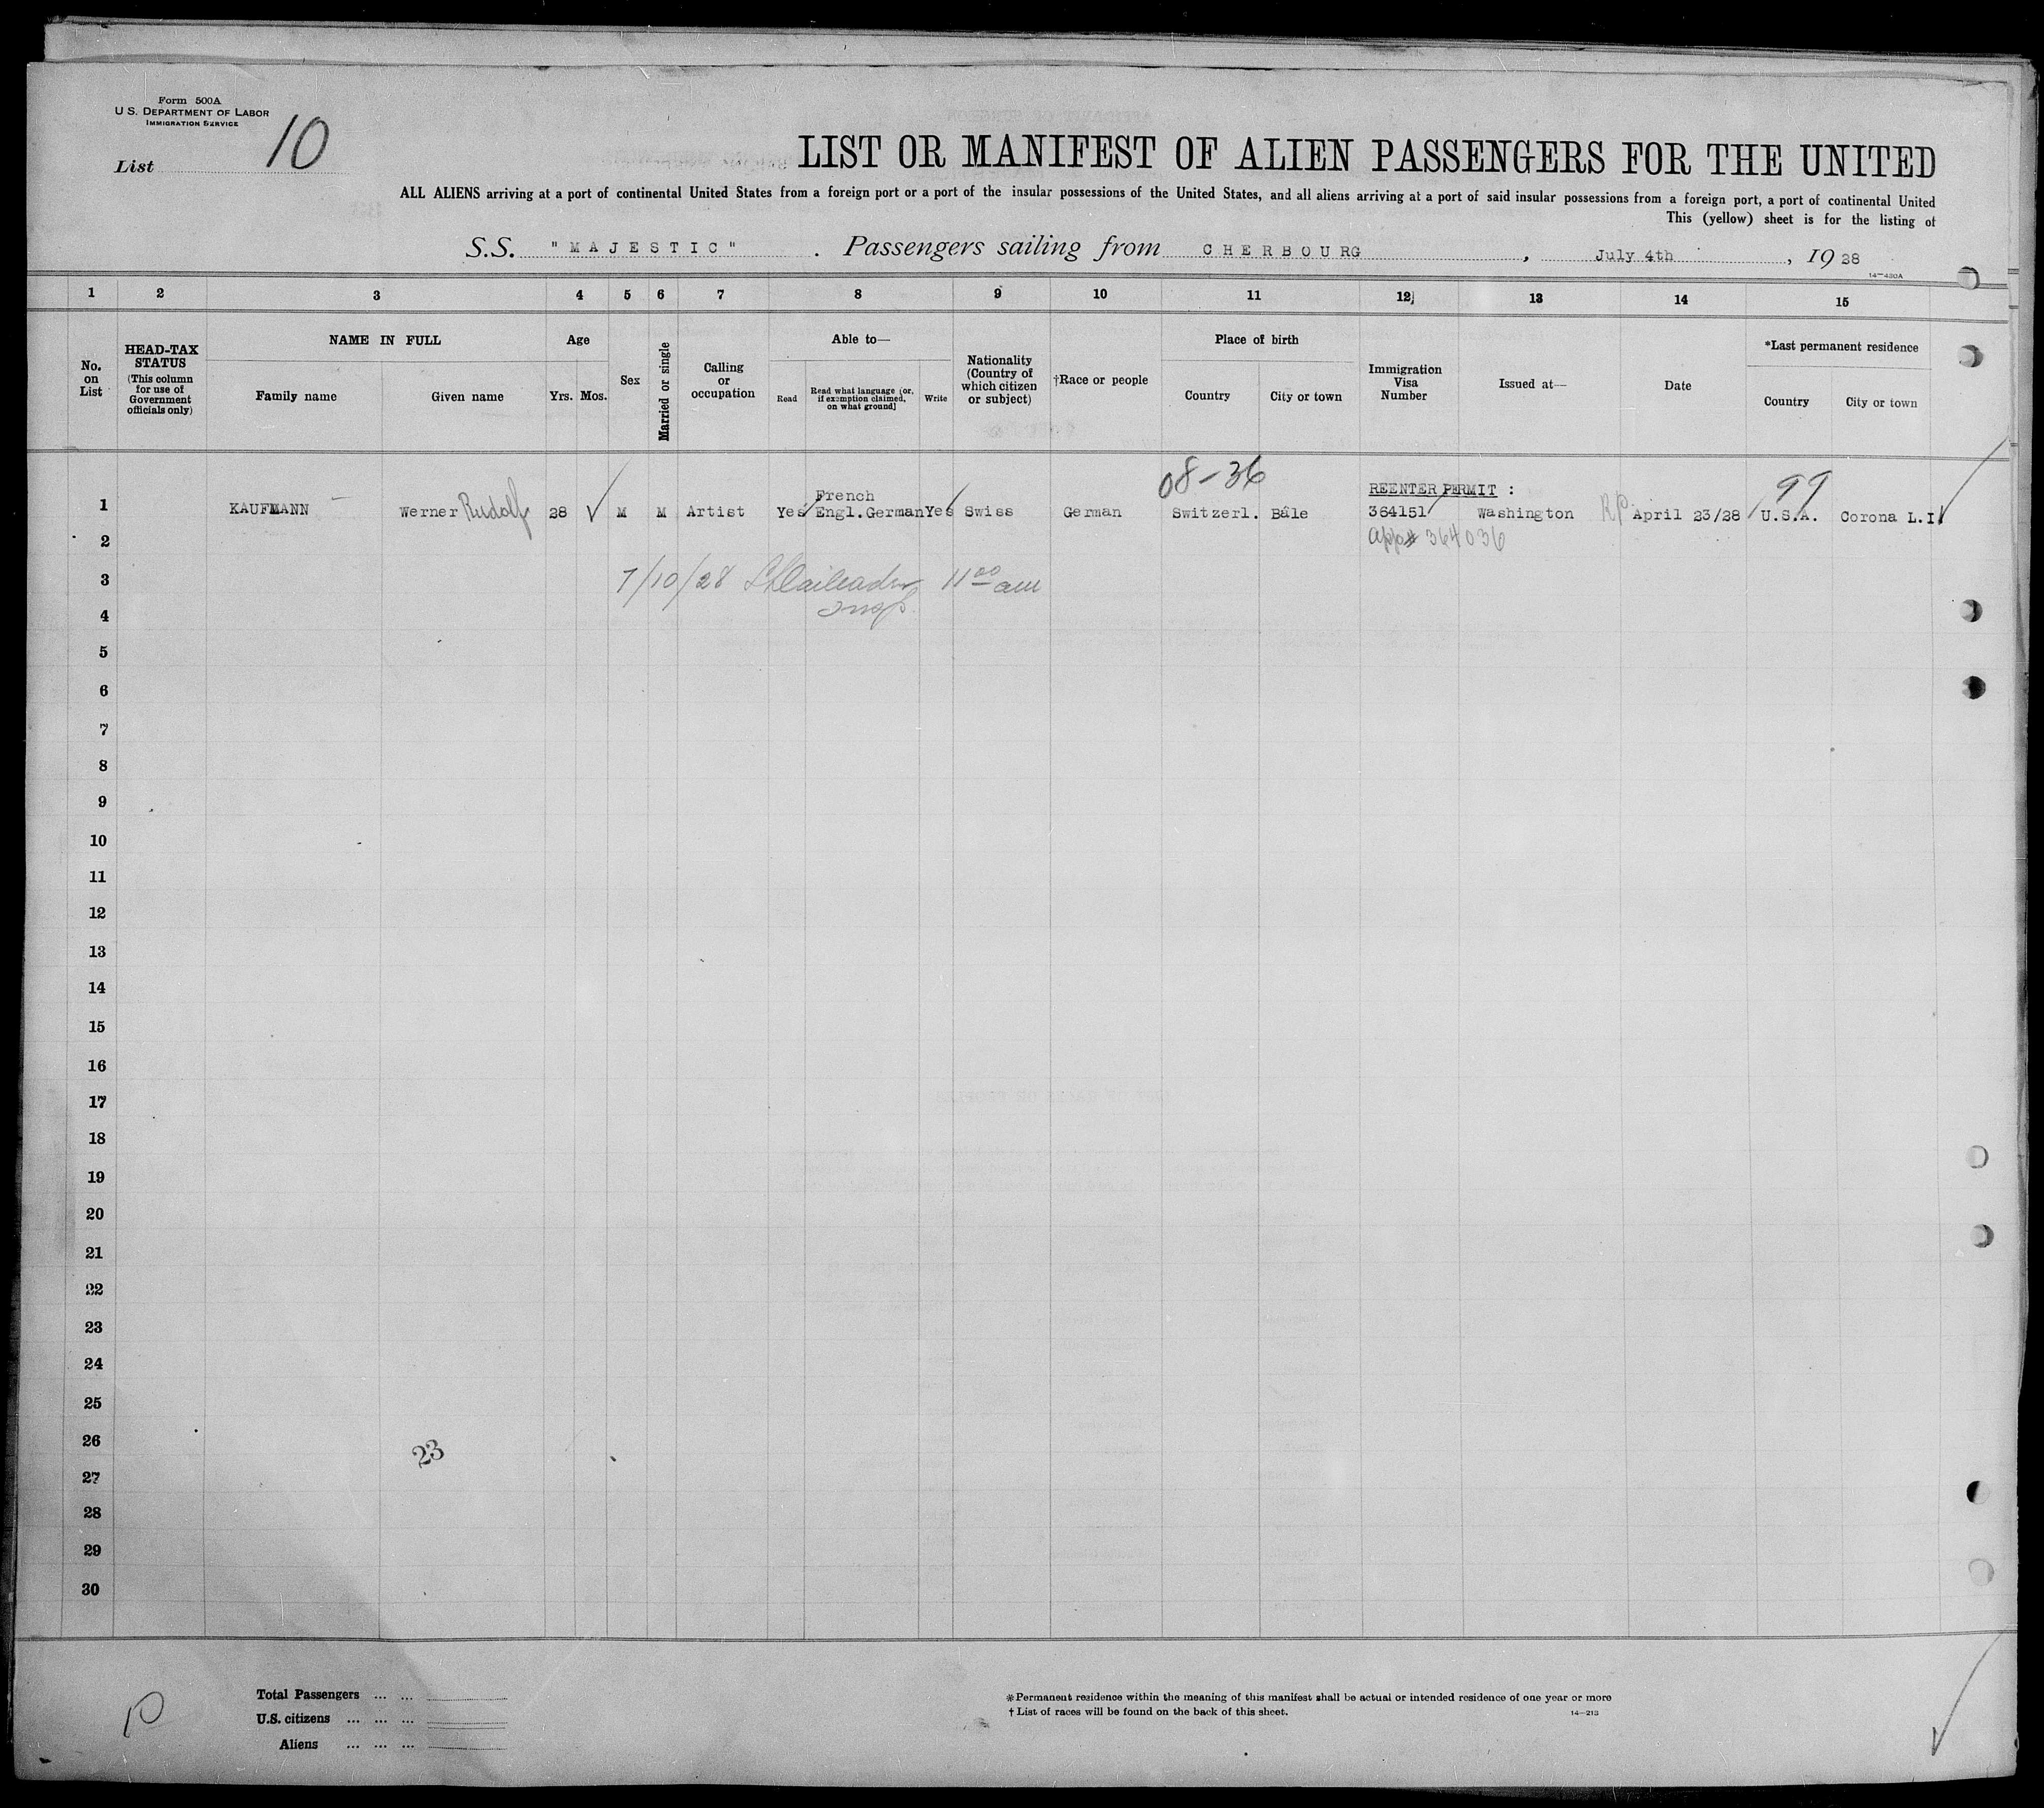 Form 500A
U S. DEPARTMENT OF LABOR
IMMIGRATION SERVICE
List 10
LIST OR MANIFEST OF ALIEN PASSENGERS FOR THE UNITED
ALL ALIENS arriving at a port of continental United States from a foreign port or a port of the insular possessions of the United States, and all aliens arriving at a port of said insular possessions from a foreign port, a port of continental United
This (yellow) sheet is for the listing of
S.S. "MAJESTIC". Passengers sailing from CHERBOURG, July 4th, 1928
14—430A
1 2 3 4 5 6 7 8 9 10 11 12 13 14 15
No. on List
HEAD-TAX STATUS (This column for use of Government officials only)
NAME IN FULL
Family name Given name
Age
Yrs. Mos.
Sex
Married or single
Calling or occupation
Able to—
Read Read what language [or, if exemption claimed, on what ground] Write
Nationality (Country of which citizen or subject)
†Race or people
Place of birth
Country City or town
Immigration Visa Number
Issued at—
Date
*Last permanent residence
Country City or town
08-36 99
French REENTER PERMIT :
1 KAUFMANN Werner Rudolf 28 M M Artist Yes Engl.German Yes Swiss German Switzerl. Bâle 364151 Washington RP April 23/28 U.S.A. Corona L.I.
2 app# 364036
3 7/10/28 11 00 am
4 Insp.
5
6
7
8
9
10
11
12
13
14
15
16
17
18
19
20
21
22
23
24
25
26
23
27
28
29
30
10
Total Passengers ... ...
U.S. citizens ... ... ...
Aliens ... ... ...
*Permanent residence within the meaning of this manifest shall be actual or intended residence of one year or more
† List of races will be found on the back of this sheet. 14—213